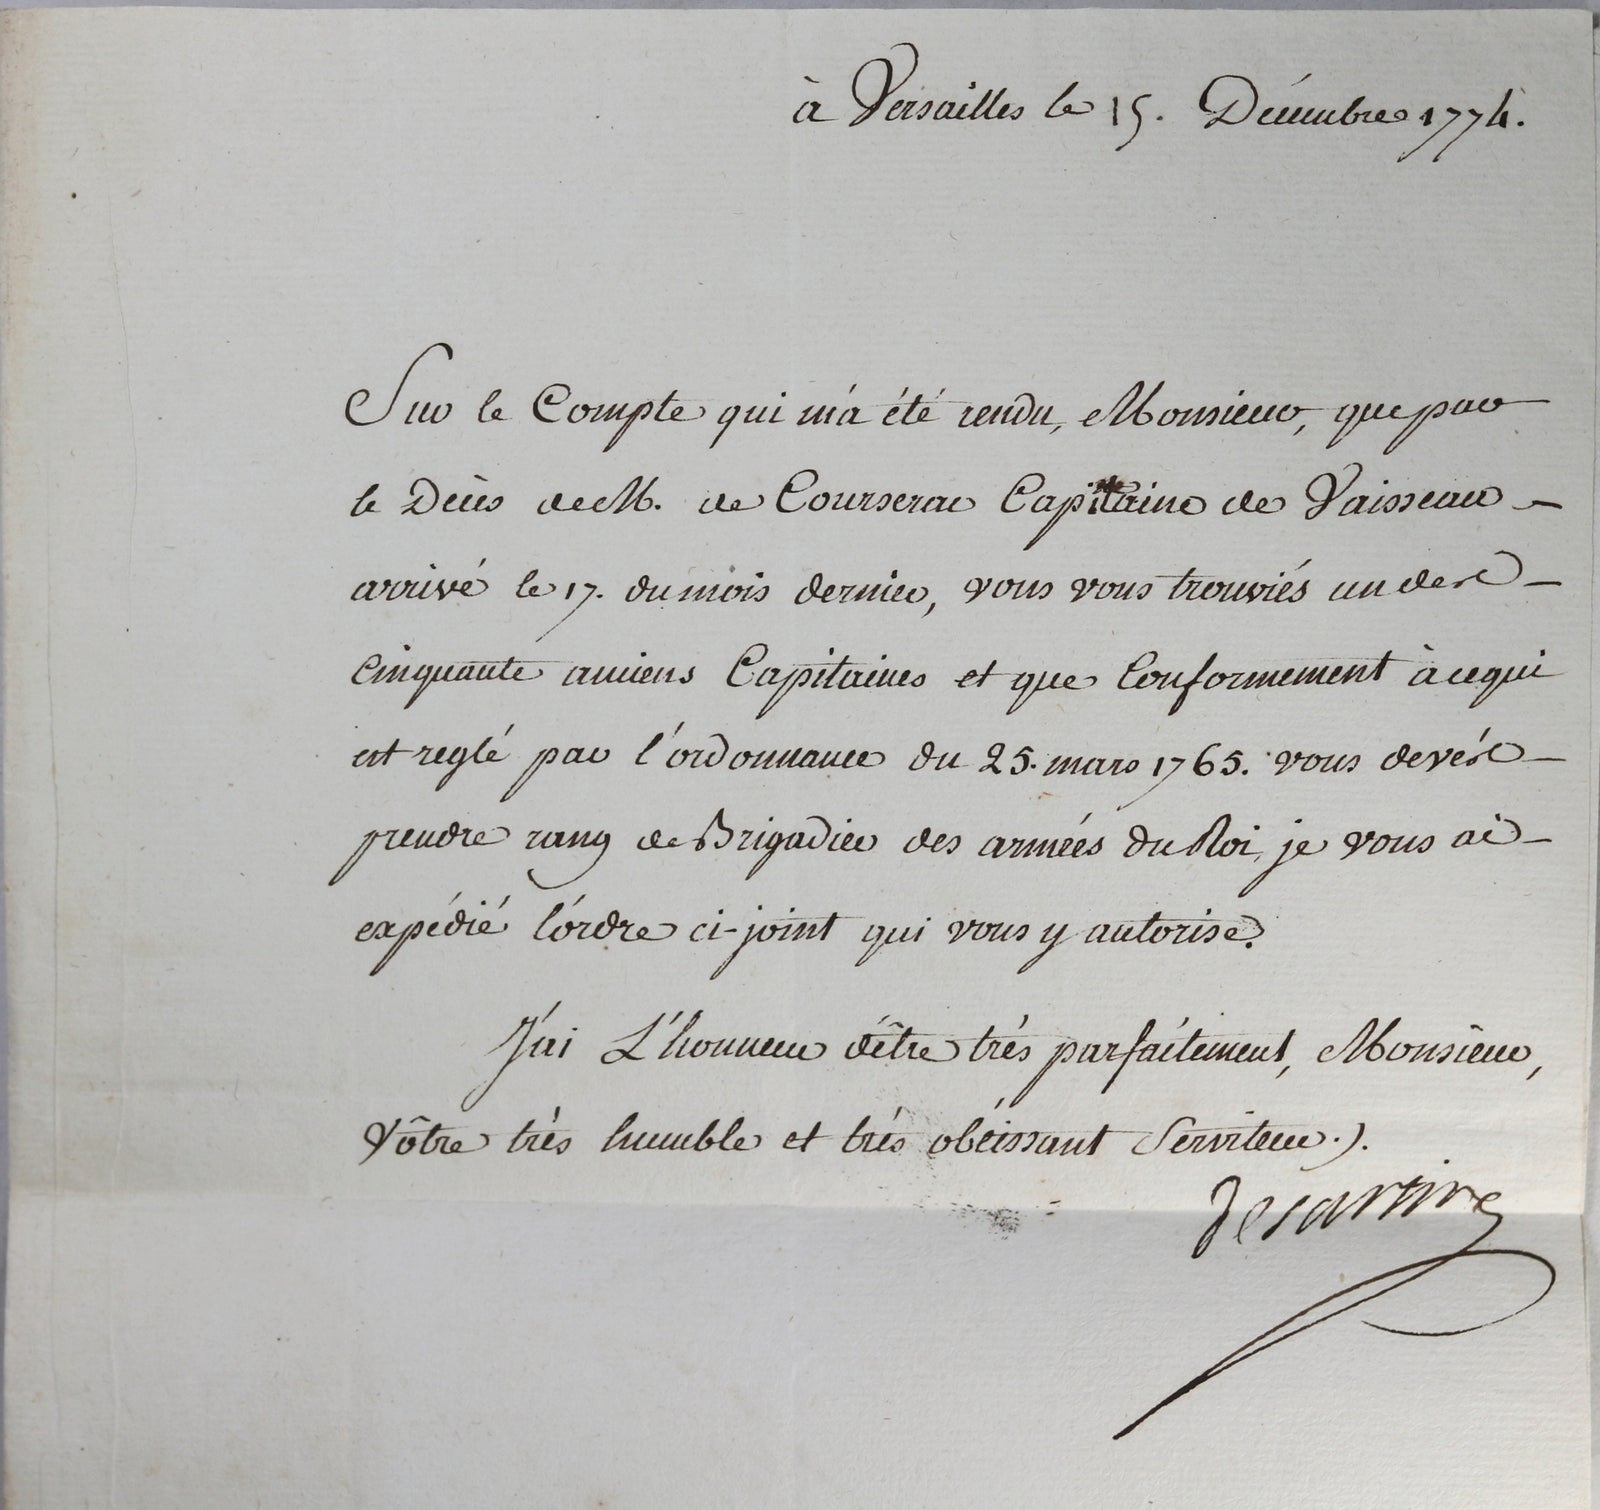 à Versailles le 15. Décembre 1774.
Sur le Compte qui m'a été rendu, Monsieur, que par
le Décès de M. de Courserac Capitaine de Vaisseau
arrivé le 17. du mois dernier, vous vous trouviés un des
Cinquante anciens Capitaines et que Conformement à ce qui
est reglé par l'ordonnance du 25. mars 1765. vous devés
prendre rang de Brigadier des armées du Roi, je vous ai
expédié l'ordre ci-joint qui vous y autorise.
J'ai L'honneur d'être très parfaitement, Monsieur,
Vôtre très humble et très obéissant Serviteur.
De sartine